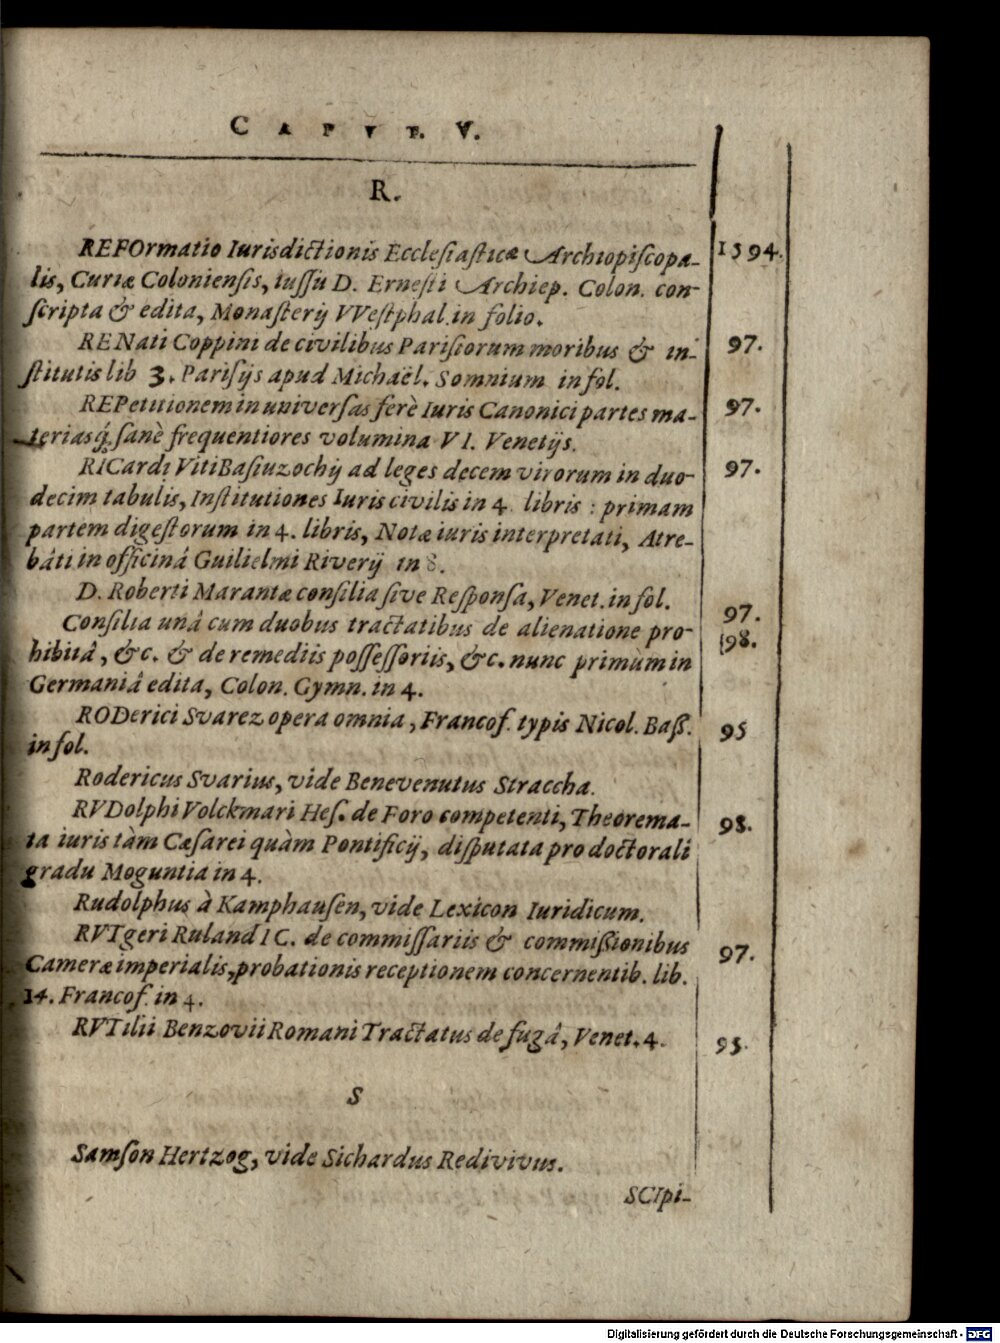 CAPVT. V.
R.
REFOrmatio Iurisdictionis Ecclesiasticæ Archiopiscopa- 1594.
lis, Curiæ Coloniensis, iussu D. Ernesti Archiep. Colon. con-
scripta & edita, Monasterij VVestphal. in folio.
RENati Coppini de civilibus Parisiorum moribus & in- 97.
stitutis lib 3. Parisijs apud Michaël. Somnium in fol.
REPetitionem in universas ferè Iuris Canonici partes ma- 97.
teriasq́; sanè frequentiores volumina VI. Venetijs.
RICardi Viti Basiuzochij ad leges decem virorum in duo- 97.
decim tabulis, Institutiones Iuris civilis in 4. libris : primam
partem digestorum in 4. libris, Notæ iuris interpretati, Atre-
bâti in officinâ Guilielmi Riverij in 8.
D. Roberti Marantæ consilia sive Responsa, Venet. in fol. 97.
Consilia unâ cum duobus tractatibus de alienatione pro- 98.
hibitâ, &c. & de remediis possessoriis, &c. nunc primùm in
Germaniâ edita, Colon. Gymn. in 4.
RODerici Svarez opera omnia, Francof. typis Nicol. Baß. 95
in fol.
Rodericus Svarius, vide Benevenutus Straccha.
RVDolphi Volckmari Hes. de Foro competenti, Theorema- 98.
ta iuris tàm Cæsarei quàm Pontificij, disputata pro doctorali
gradu Moguntia in 4.
Rudolphus à Kamphausen, vide Lexicon Iuridicum.
RVTgeri Ruland IC. de commissariis & commißionibus 97.
Cameræ imperialis, probationis receptionem concernentib. lib.
14. Francof. in 4.
RVTilii Benzovii Romani Tractatus de fugâ, Venet. 4. 95.
S
Samson Hertzog, vide Sichardus Redivivus.
SCIpi-
Digitalisierung gefördert durch die Deutsche Forschungsgemeinschaft - DFG